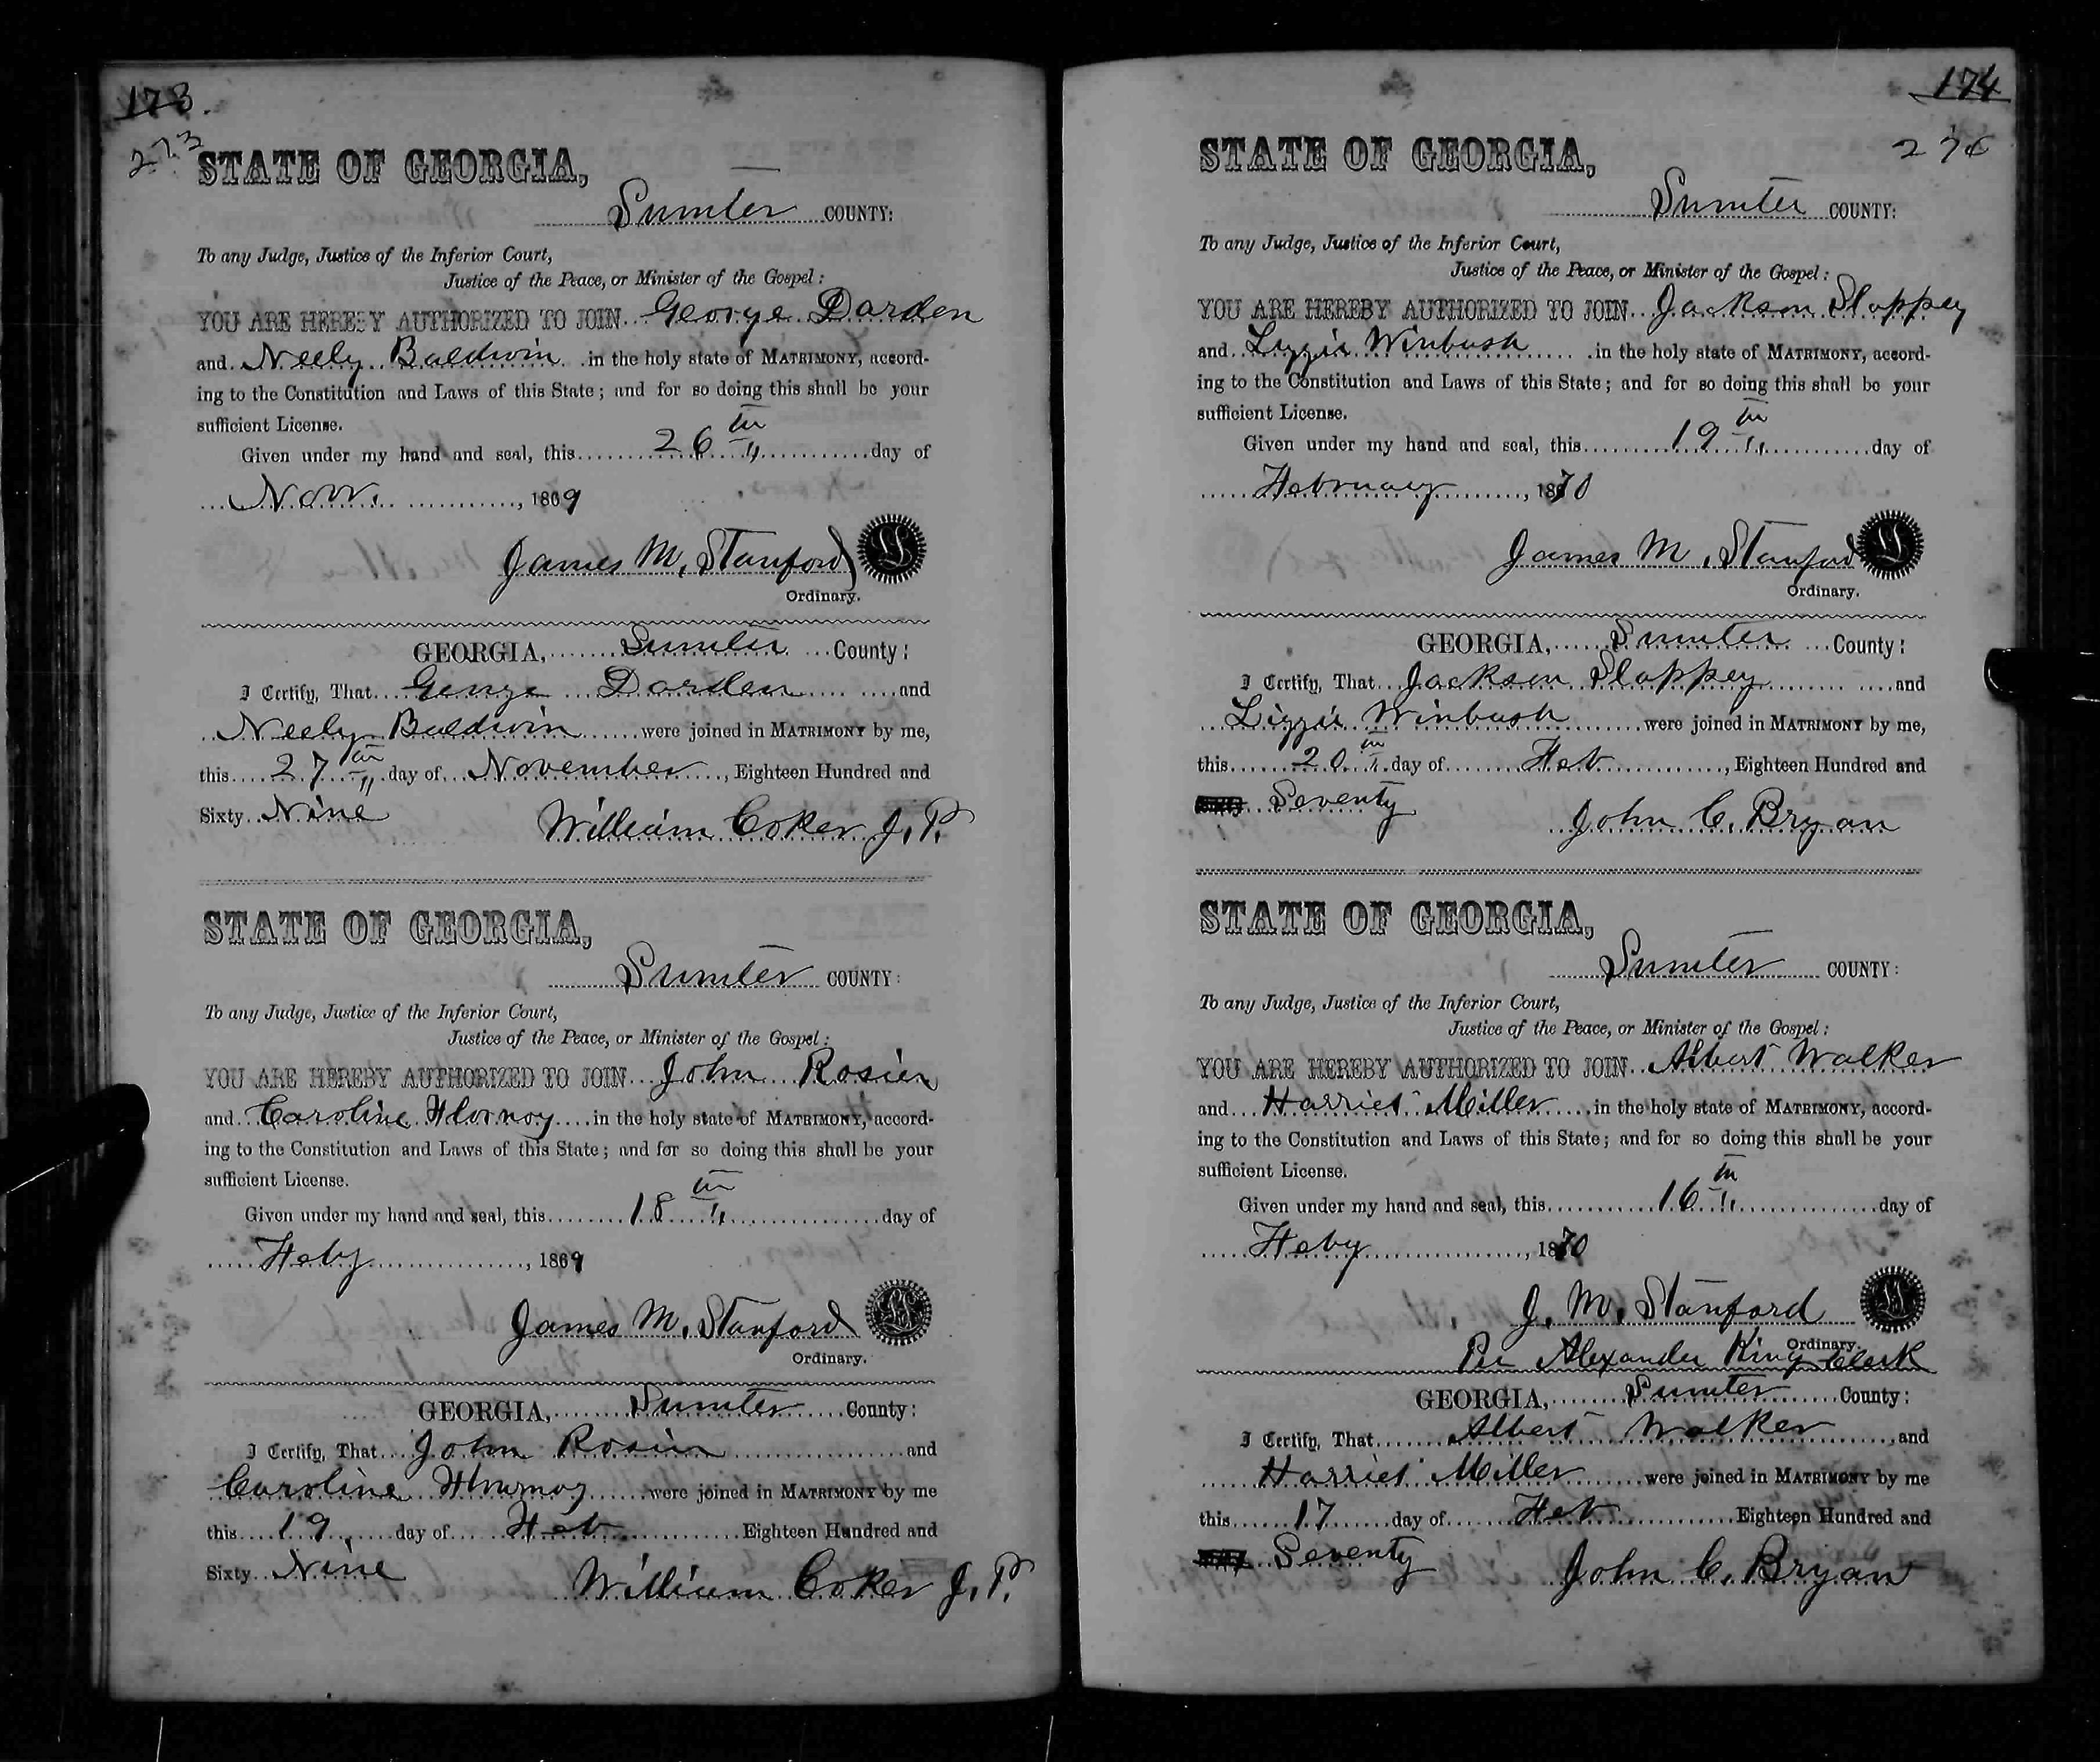 173.
273
STATE OF GEORGIA,
Sumter COUNTY:
To any Judge, Justice of the Inferior Court,
Justice of the Peace, or Minister of the Gospel:
YOU ARE HEREBY AUTHORIZED TO JOIN George Darden
and Neely Baldwin in the holy state of MATRIMONY, accord-
ing to the Constitution and Laws of this State; and for so doing this shall be your
sufficient License.
Given under my hand and seal, this 26th day of
Nov. , 1869
James M. Stanford LS
Ordinary.
GEORGIA, Sumter County:
I Certify, That George Darden and
Neely Baldwin were joined in MATRIMONY by me,
this 27th day of November, Eighteen Hundred and
Sixty Nine William Coker J. P.
STATE OF GEORGIA,
Sumter COUNTY:
To any Judge, Justice of the Inferior Court,
Justice of the Peace, or Minister of the Gospel:
YOU ARE HEREBY AUTHORIZED TO JOIN John Rosier
and Caroline Flornoy in the holy state of MATRIMONY, accord-
ing to the Constitution and Laws of this State; and for so doing this shall be your
sufficient License.
Given under my hand and seal, this 18th day of
Feby , 1869
James M. Stanford LS
Ordinary.
GEORGIA, Sumter County:
I Certify, That John Rosier and
Caroline Flournoy were joined in MATRIMONY by me
this 19 day of Feb Eighteen Hundred and
Sixty Nine William Coker J. P.
174
STATE OF GEORGIA,
Sumter COUNTY:
To any Judge, Justice of the Inferior Court,
Justice of the Peace, or Minister of the Gospel:
YOU ARE HEREBY AUTHORIZED TO JOIN Jackson Slappey
and Lizzie Winbush in the holy state of MATRIMONY, accord-
ing to the Constitution and Laws of this State; and for so doing this shall be your
sufficient License.
Given under my hand and seal, this 19th day of
February , 1870
James M. Stanford LS
Ordinary.
GEORGIA, Sumter County:
I Certify, That Jackson Slappey and
Lizzie Winbush were joined in MATRIMONY by me,
this 20th day of Feb , Eighteen Hundred and
Seventy John C. Bryan
STATE OF GEORGIA,
Sumter COUNTY:
To any Judge, Justice of the Inferior Court,
Justice of the Peace, or Minister of the Gospel:
YOU ARE HEREBY AUTHORIZED TO JOIN Albert Walker
and Harriet Miller in the holy state of MATRIMONY, accord-
ing to the Constitution and Laws of this State; and for so doing this shall be your
sufficient License.
Given under my hand and seal, this 16th day of
Feby , 1870
J. M. Stanford LS
Ordinary.
Per Alexander King Clerk
GEORGIA, Sumter County:
I Certify, That Albert Walker and
Harriet Miller were joined in MATRIMONY by me
this 17 day of Feb Eighteen Hundred and
Seventy John C. Bryan